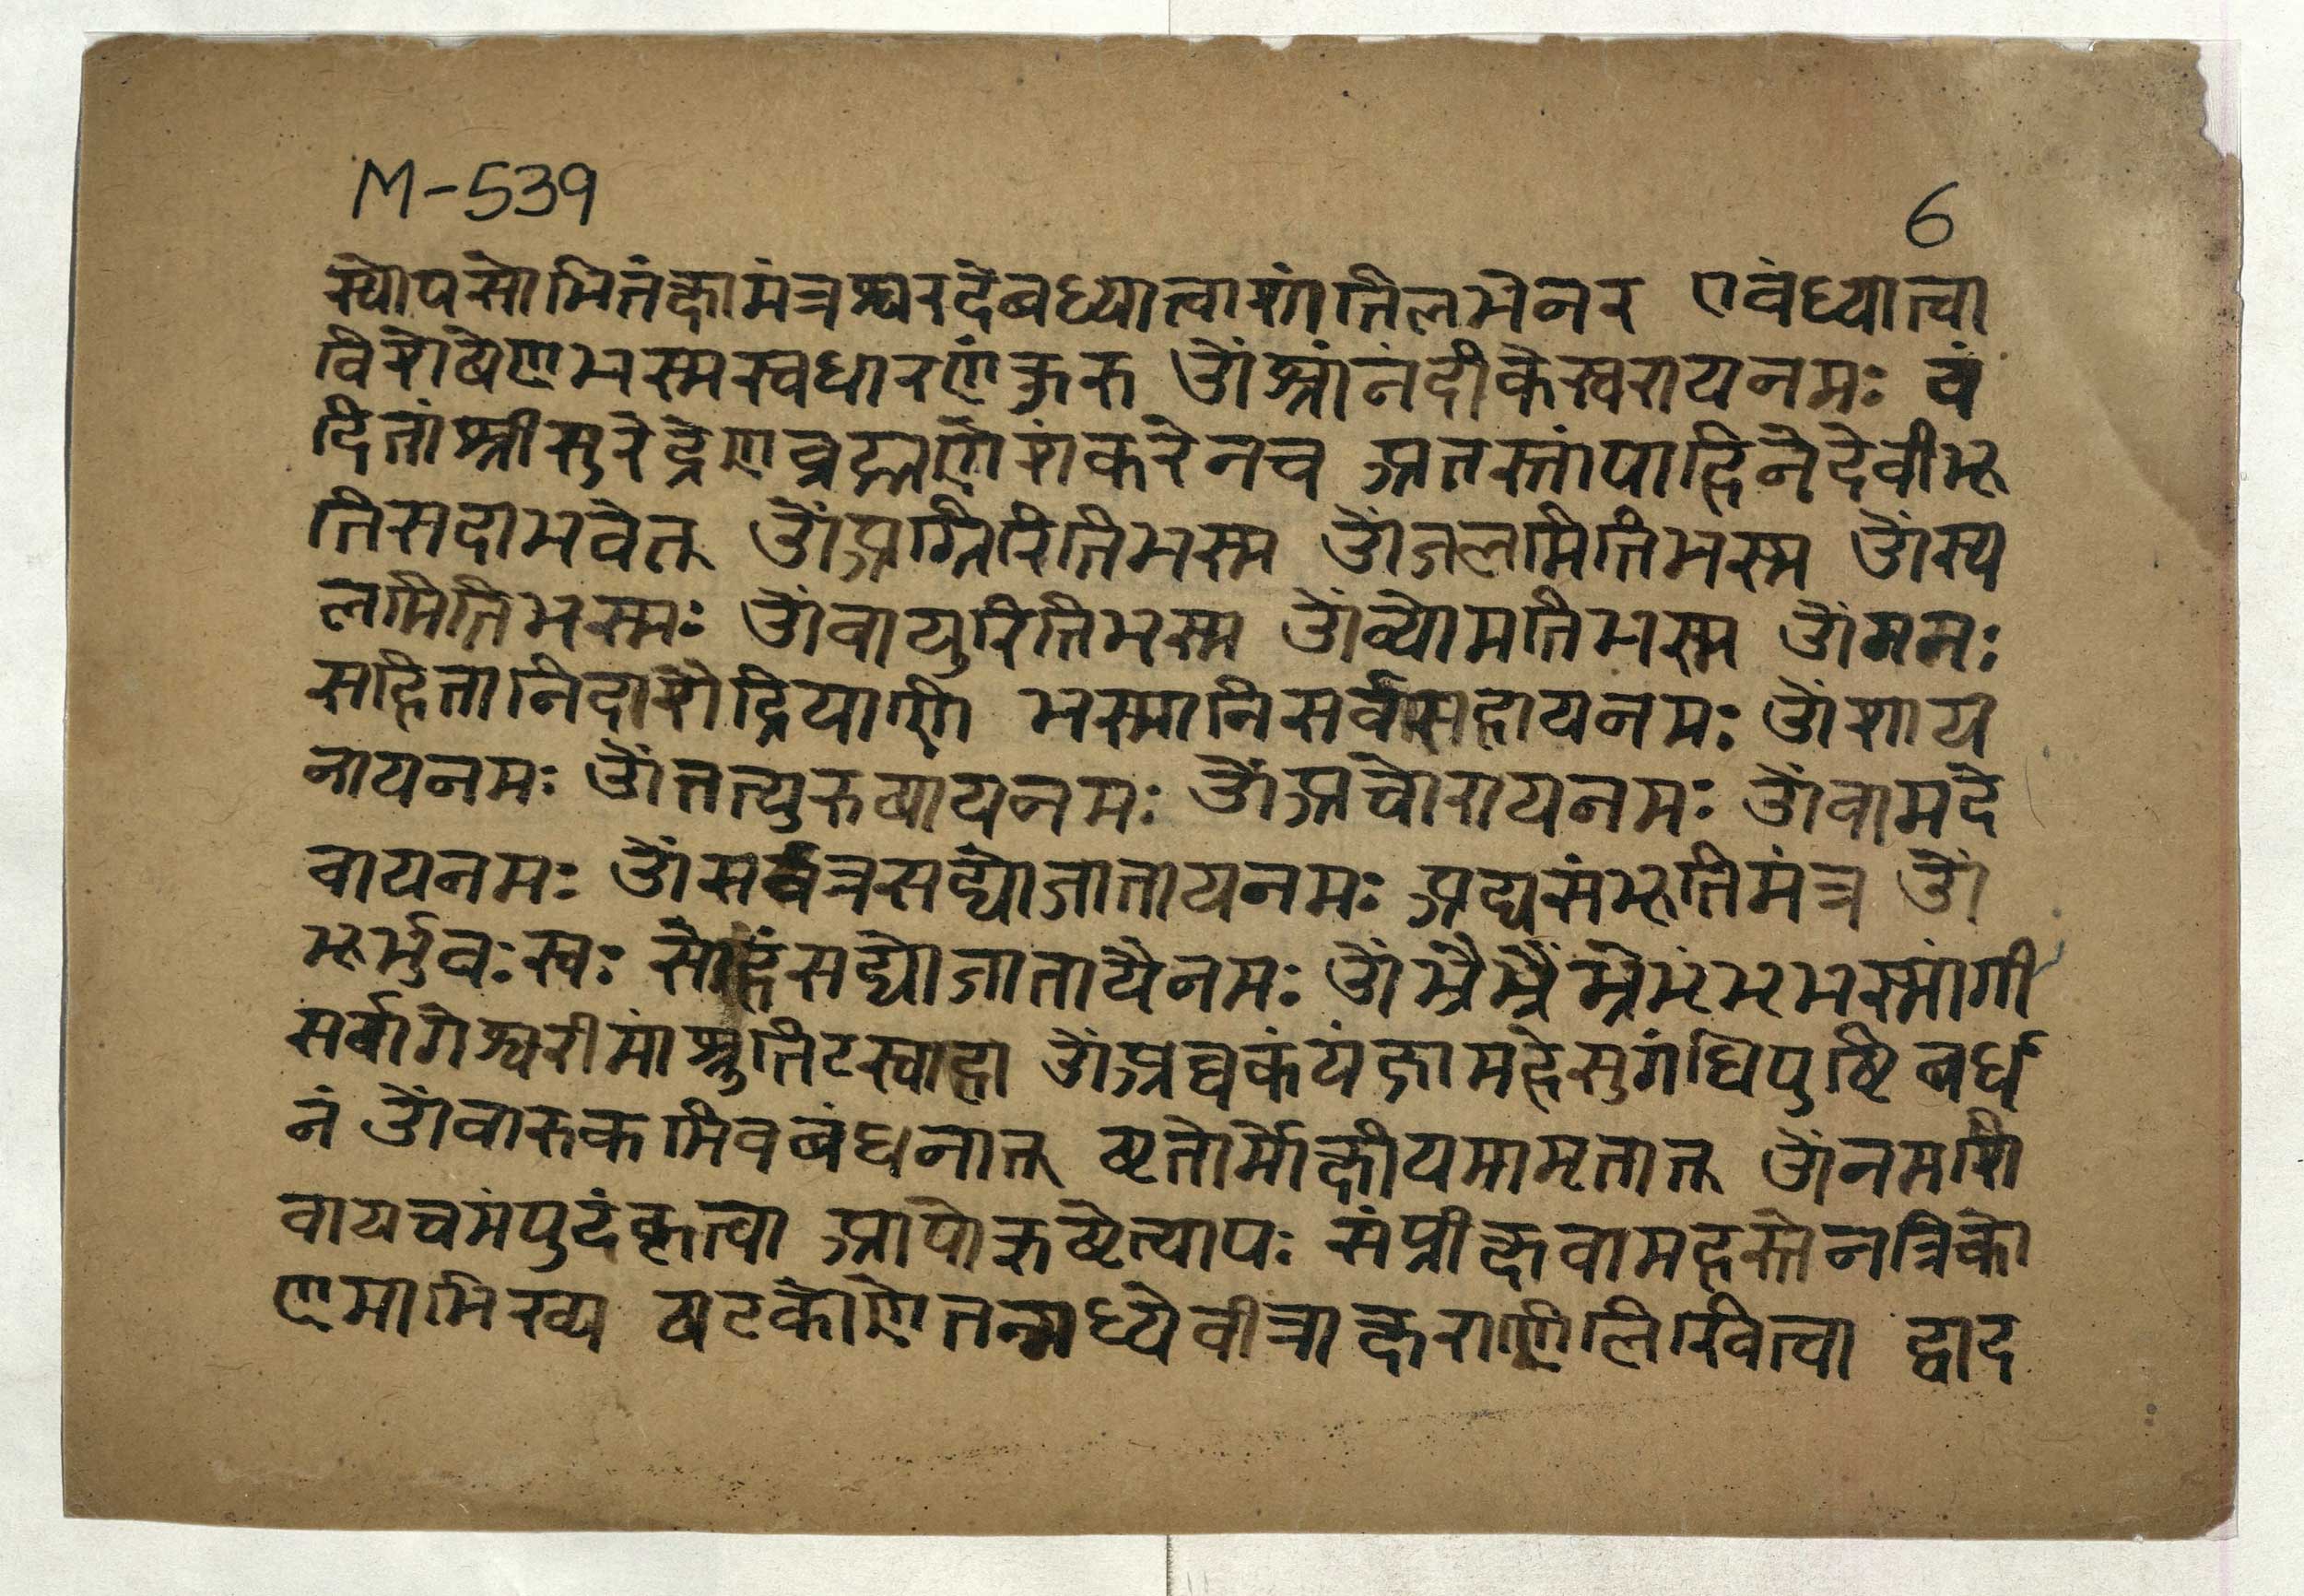 M-539
6
स्योपसोमितंक्षामंत्रश्चरदेबध्यात्वाशांतिलभेनर एवंध्यात्वा
विशेषेणभस्मस्वधारणंकुरु ॐश्रांनंदीकेस्वरायनमः वं
दितांश्रीसुरेद्रेणब्रह्मणेशंकरेनच अतस्तांपाहिनेदेवीभू
तिसदाभवेत् ॐअग्निरितिभस्म ॐजलमितिभस्म ॐस्थ
लमितिभस्मः ॐवायुरितिभस्म ॐव्योमतिभस्म ॐमनः
सहितानिदाशेंद्रियाणि भस्मानिसर्वसहायनमः ॐशाय
नायनमः ॐतत्पुरुषायनमः ॐअघोरायनमः ॐवामदे
वायनमः ॐसर्वत्रसद्योजातायनमः अद्यसंभूतिमंत्र ॐ
भूर्भुवःस्वः सोहंसद्योजातायैनमः ॐभ्रैभ्रैंभ्रेभंभभस्मांगी
सर्वागेश्वरीमांश्रुतिटस्वाहा ॐत्र्यम्बकंयंजामहेसुगंधिपुष्टिबर्ध
नं ॐवारुकमिवबंधनात् ष्टतोर्मोक्षीयमामृतात् ॐनमशि
वायचमंपुटंकृत्वा आपोरुष्टेत्यापः संप्रीक्षवामहस्तेनत्रिको
णमाभिख्य षटकोणेतन्मध्येवीत्राक्षराणिलिखित्वा द्वाद